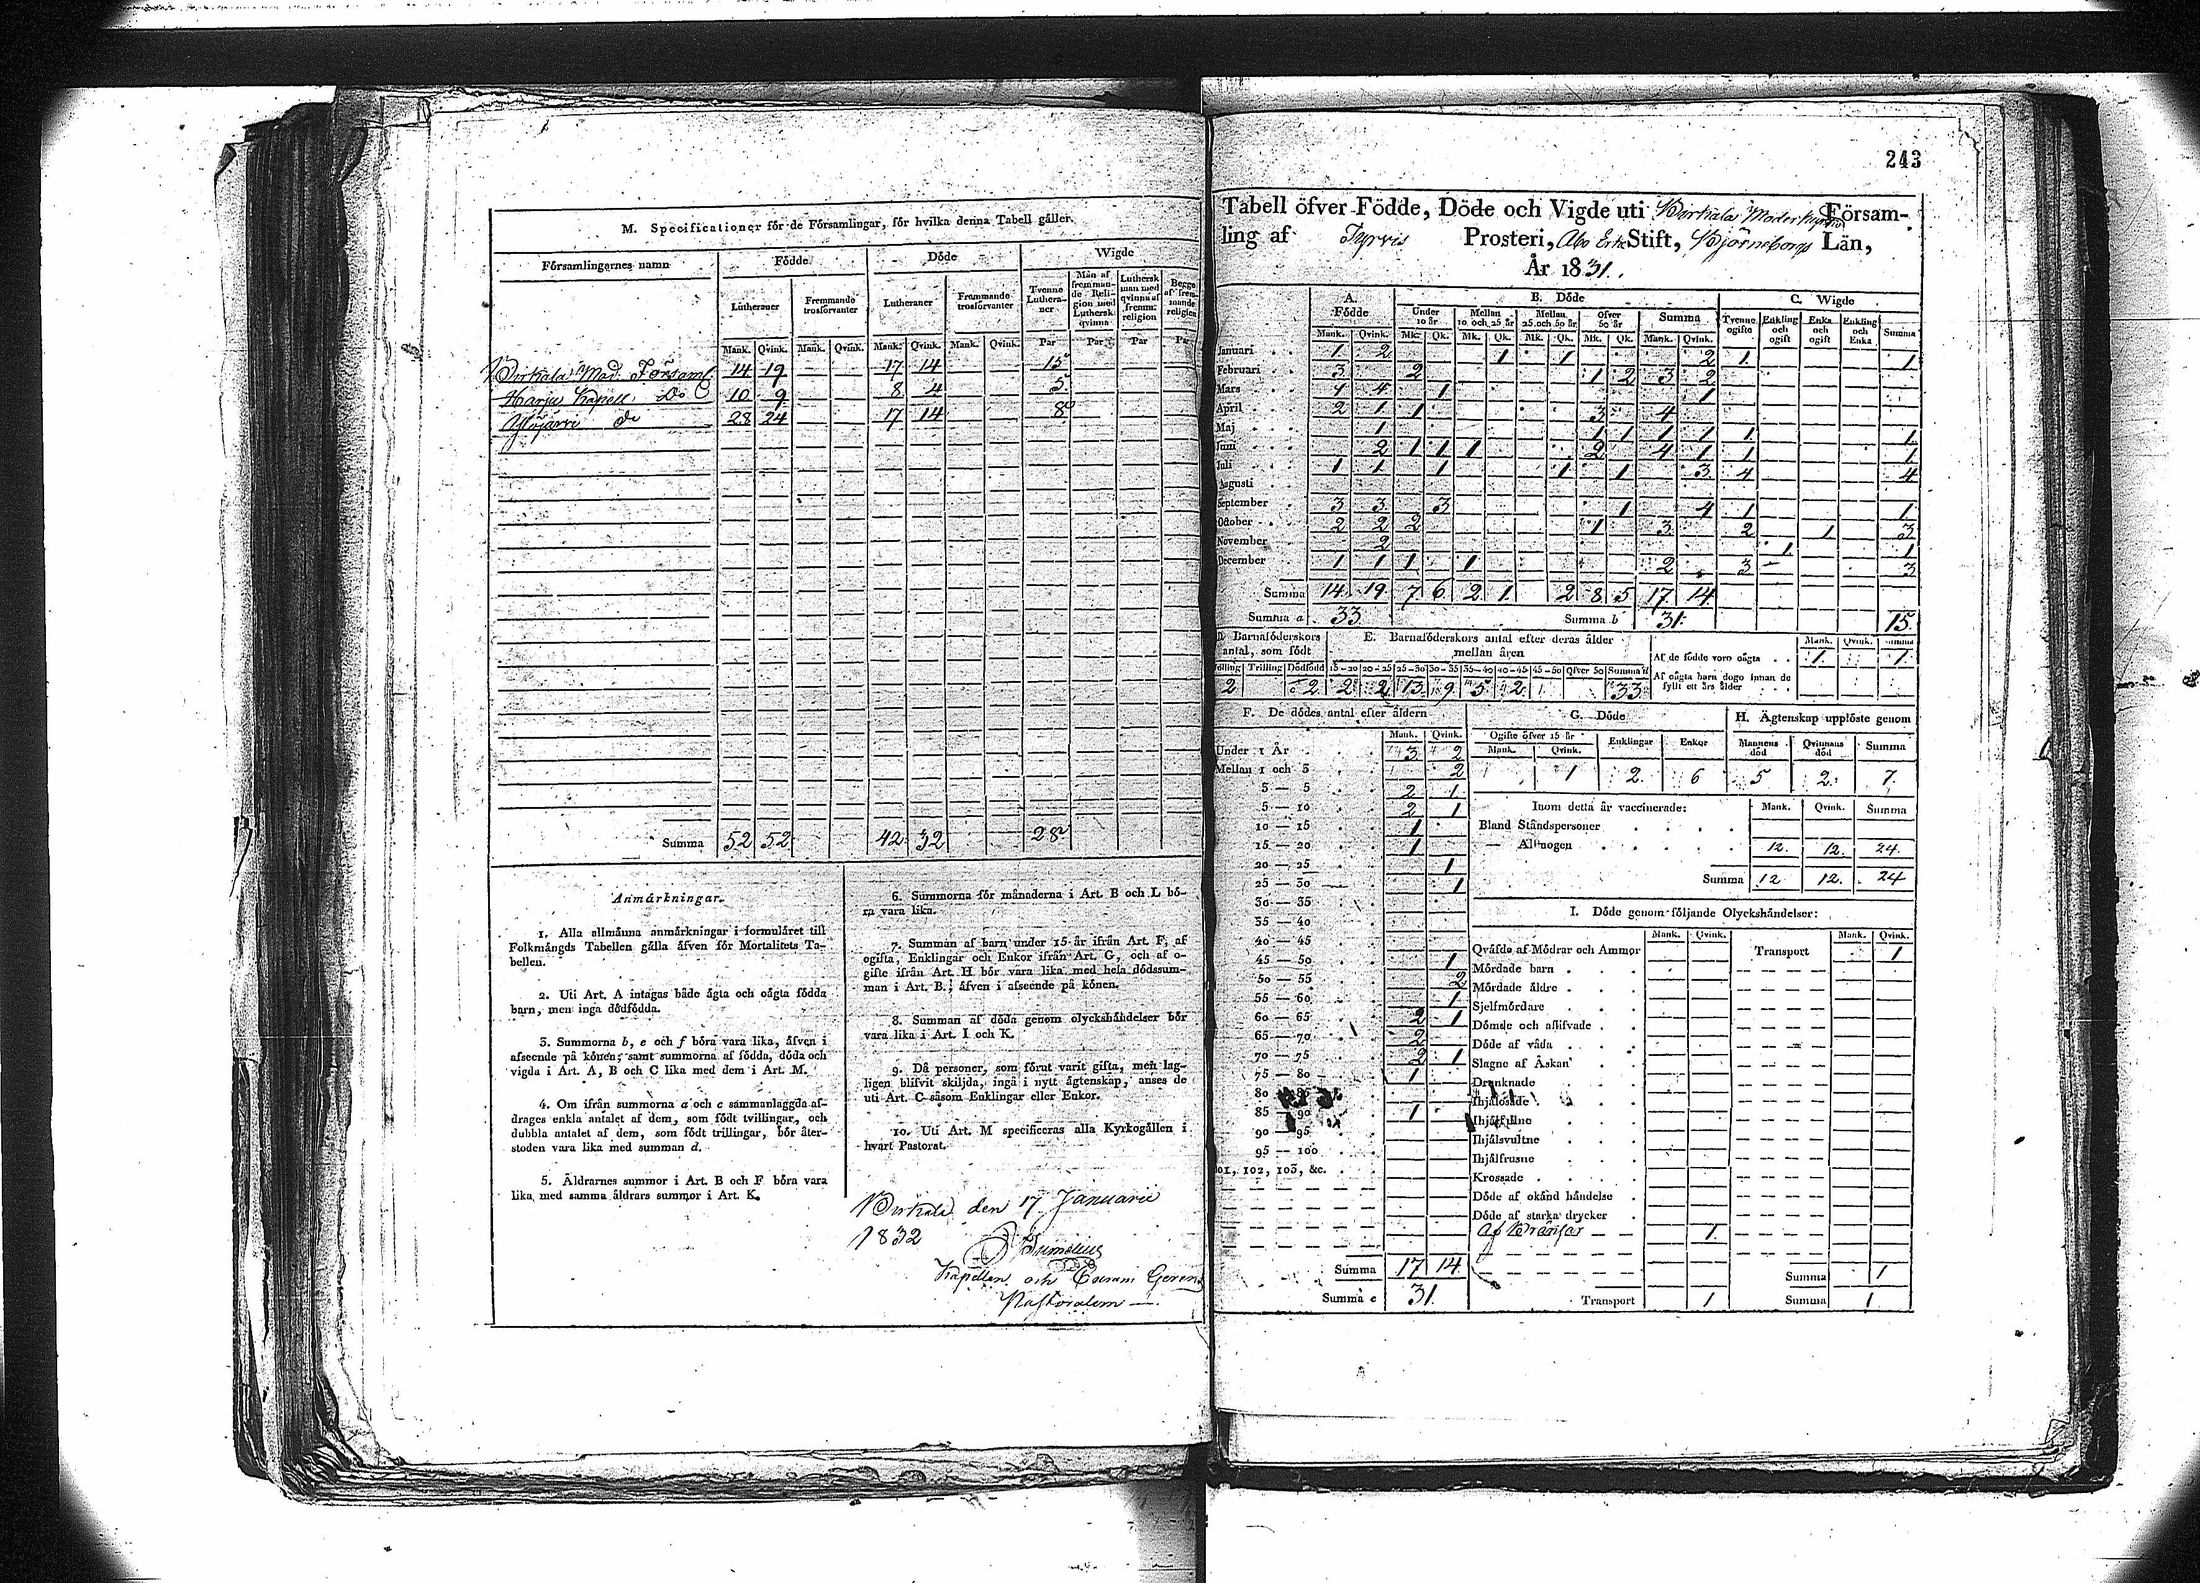 M. Specificationer för de Församlingar, för hvilka denna Tabell gäller.
Församlingarnes namn Födde Döde Wigde
Lutheraner Fremmande trosförvanter Lutheraner Fremmande trosförvanter Tvenne Lutheraner Män af fremmande Religion med Luthersk qvinna Luthersk man med qvinna af fremm: religion Begge af fremmande religion
Mank. Qvink. Mank. Qvink. Mank. Qvink. Mank. Qvink. Par Par Par Par
Birkala Mod. Församl. 14 19 17 14 15
Harju Kapell Do 10 9 8 4 5
Ylöjärvi do 28 24 17 14 8
Summa 52 52 42 32 28
Anmärkningar.
1. Alla allmänna anmärkningar i formuläret till
Folkmängds Tabellen gälla äfven för Mortalitets Ta-
bellen.
2. Uti Art. A intagas både ägta och oägta födda
barn, men inga dödfödda.
3. Summorna b, e och f böra vara lika, äfven i
afseende på könen; samt summorna af födda, döda och
vigda i Art. A, B och C lika med dem i Art. M.
4. Om ifrån summorna a och c sammanlaggda af-
drages enkla antalet af dem, som födt tvillingar, och
dubbla antalet af dem, som födt trillingar, bör åter-
stoden vara lika med summan d.
5. Åldrarnes summor i Art. B och F böra vara
lika med samma åldrars summor i Art. K.
6. Summorna för månaderna i Art. B och L bö-
ra vara lika.
7. Summan af barn under 15 år ifrån Art. F, af
ogifta, Enklingar och Enkor ifrån Art. G, och af o-
gifte ifrån Art. H bör vara lika med hela dödssum-
man i Art. B.; äfven i afseende på könen.
8. Summan af döda genom olyckshändelser bör
vara lika i Art. I och K.
9. Då personer, som förut varit gifta, men lag-
ligen blifvit skiljda, ingå i nytt ägtenskap, anses de
uti Art. C såsom Enklingar eller Enkor.
10. Uti Art. M specificeras alla Kyrkogällen i
hvart Pastorat.
Birkala den 17 Januarii
1832
Kapellan och
Pastoralem
243
Tabell öfver Födde, Döde och Vigde uti Birkala Moderkyrko Försam-
ling af Tyrvis Prosteri, Åbo Erke Stift, Björneborgs Län,
År 1831.
A. Födde B. Döde C. Wigde
Under 10 år Mellan 10 och 25 år Mellan 25 och 50 år Öfver 50 år Summa Tvenne ogifte Enkling och ogift Enka och ogift Enkling och Enka Summa
Mank. Qvink. Mk. Qk. Mk. Qk. Mk. Qk. Mk. Qk. Mank. Qvink.
Januari 1 2 1 1 2 1 1
Februari 3 2 1 2 3 2
Mars 1 4 1 1
April 2 1 1 3 4
Maj 1 1 1 1 1 1 1
Juni 2 1 1 1 2 4 1 1 1
Juli 1 1 1 1 1 3 4 4
Augusti
September 3 3 3 1 4 1 1
October 2 2 2 1 3 2 1 3
November 2 1 1
December 1 1 1 1 2 3 3
Summa 14 19 7 6 2 1 2 8 5 17 14
Summa a 33 Summa b 31 15
D. Barnaföderskors antal, som födt E. Barnaföderskors antal efter deras ålder mellan åren
Mank. Qvink. Summa
Tvilling Trilling Dödfödd 15-20 20-25 25-30 30-35 35-40 40-45 45-50 Öfver 50 Summa d
2 2 2 2 13 9 5 2 33
Af de födde voro oägta 1 1
Af oägta barn dogo innan de
fyllt ett års ålder
F. De dödes antal efter åldern
Mank. Qvink.
Under 1 År 3 2
Mellan 1 och 3 2
3 — 5 2 1
5 — 10 2 1
10 — 15 1
15 — 20 1
20 — 25 1
25 — 30 1
30 — 35
35 — 40
40 — 45
45 — 50 1
50 — 55 2
55 — 60 1
60 — 65 2 1
65 — 70 2
70 — 75 2 1
75 — 80 1
80
85 — 90 1
90 — 95
95 — 100
101, 102, 103, &c.
Summa 17 14
Summa e 31
G. Döde
Ogifte öfver 15 år Enklingar Enkor
Mank. Qvink.
1 2 6
H. Ägtenskap upplöste genom
Mannens död Qvinnans död Summa
5 2 7
Inom detta år vaccinerade: Mank. Qvink. Summa
Bland Ståndspersoner
— Allmogen 12 12 24
Summa 12 12 24
I. Döde genom följande Olyckshändelser:
Mank. Qvink. Mank. Qvink.
Qväfde af Mödrar och Ammor Transport 1
Mördade barn
Mördade äldre
Sjelfmördare
Dömde och aflifvade
Döde af våda
Slagne af Åskan
Drunknade
Ihjälfallne
Ihjälsvultne
Ihjälfrusne
Krossade
Döde af okänd händelse
Döde af starka drycker
Af 1
Summa 1
Transport 1 Summa 1